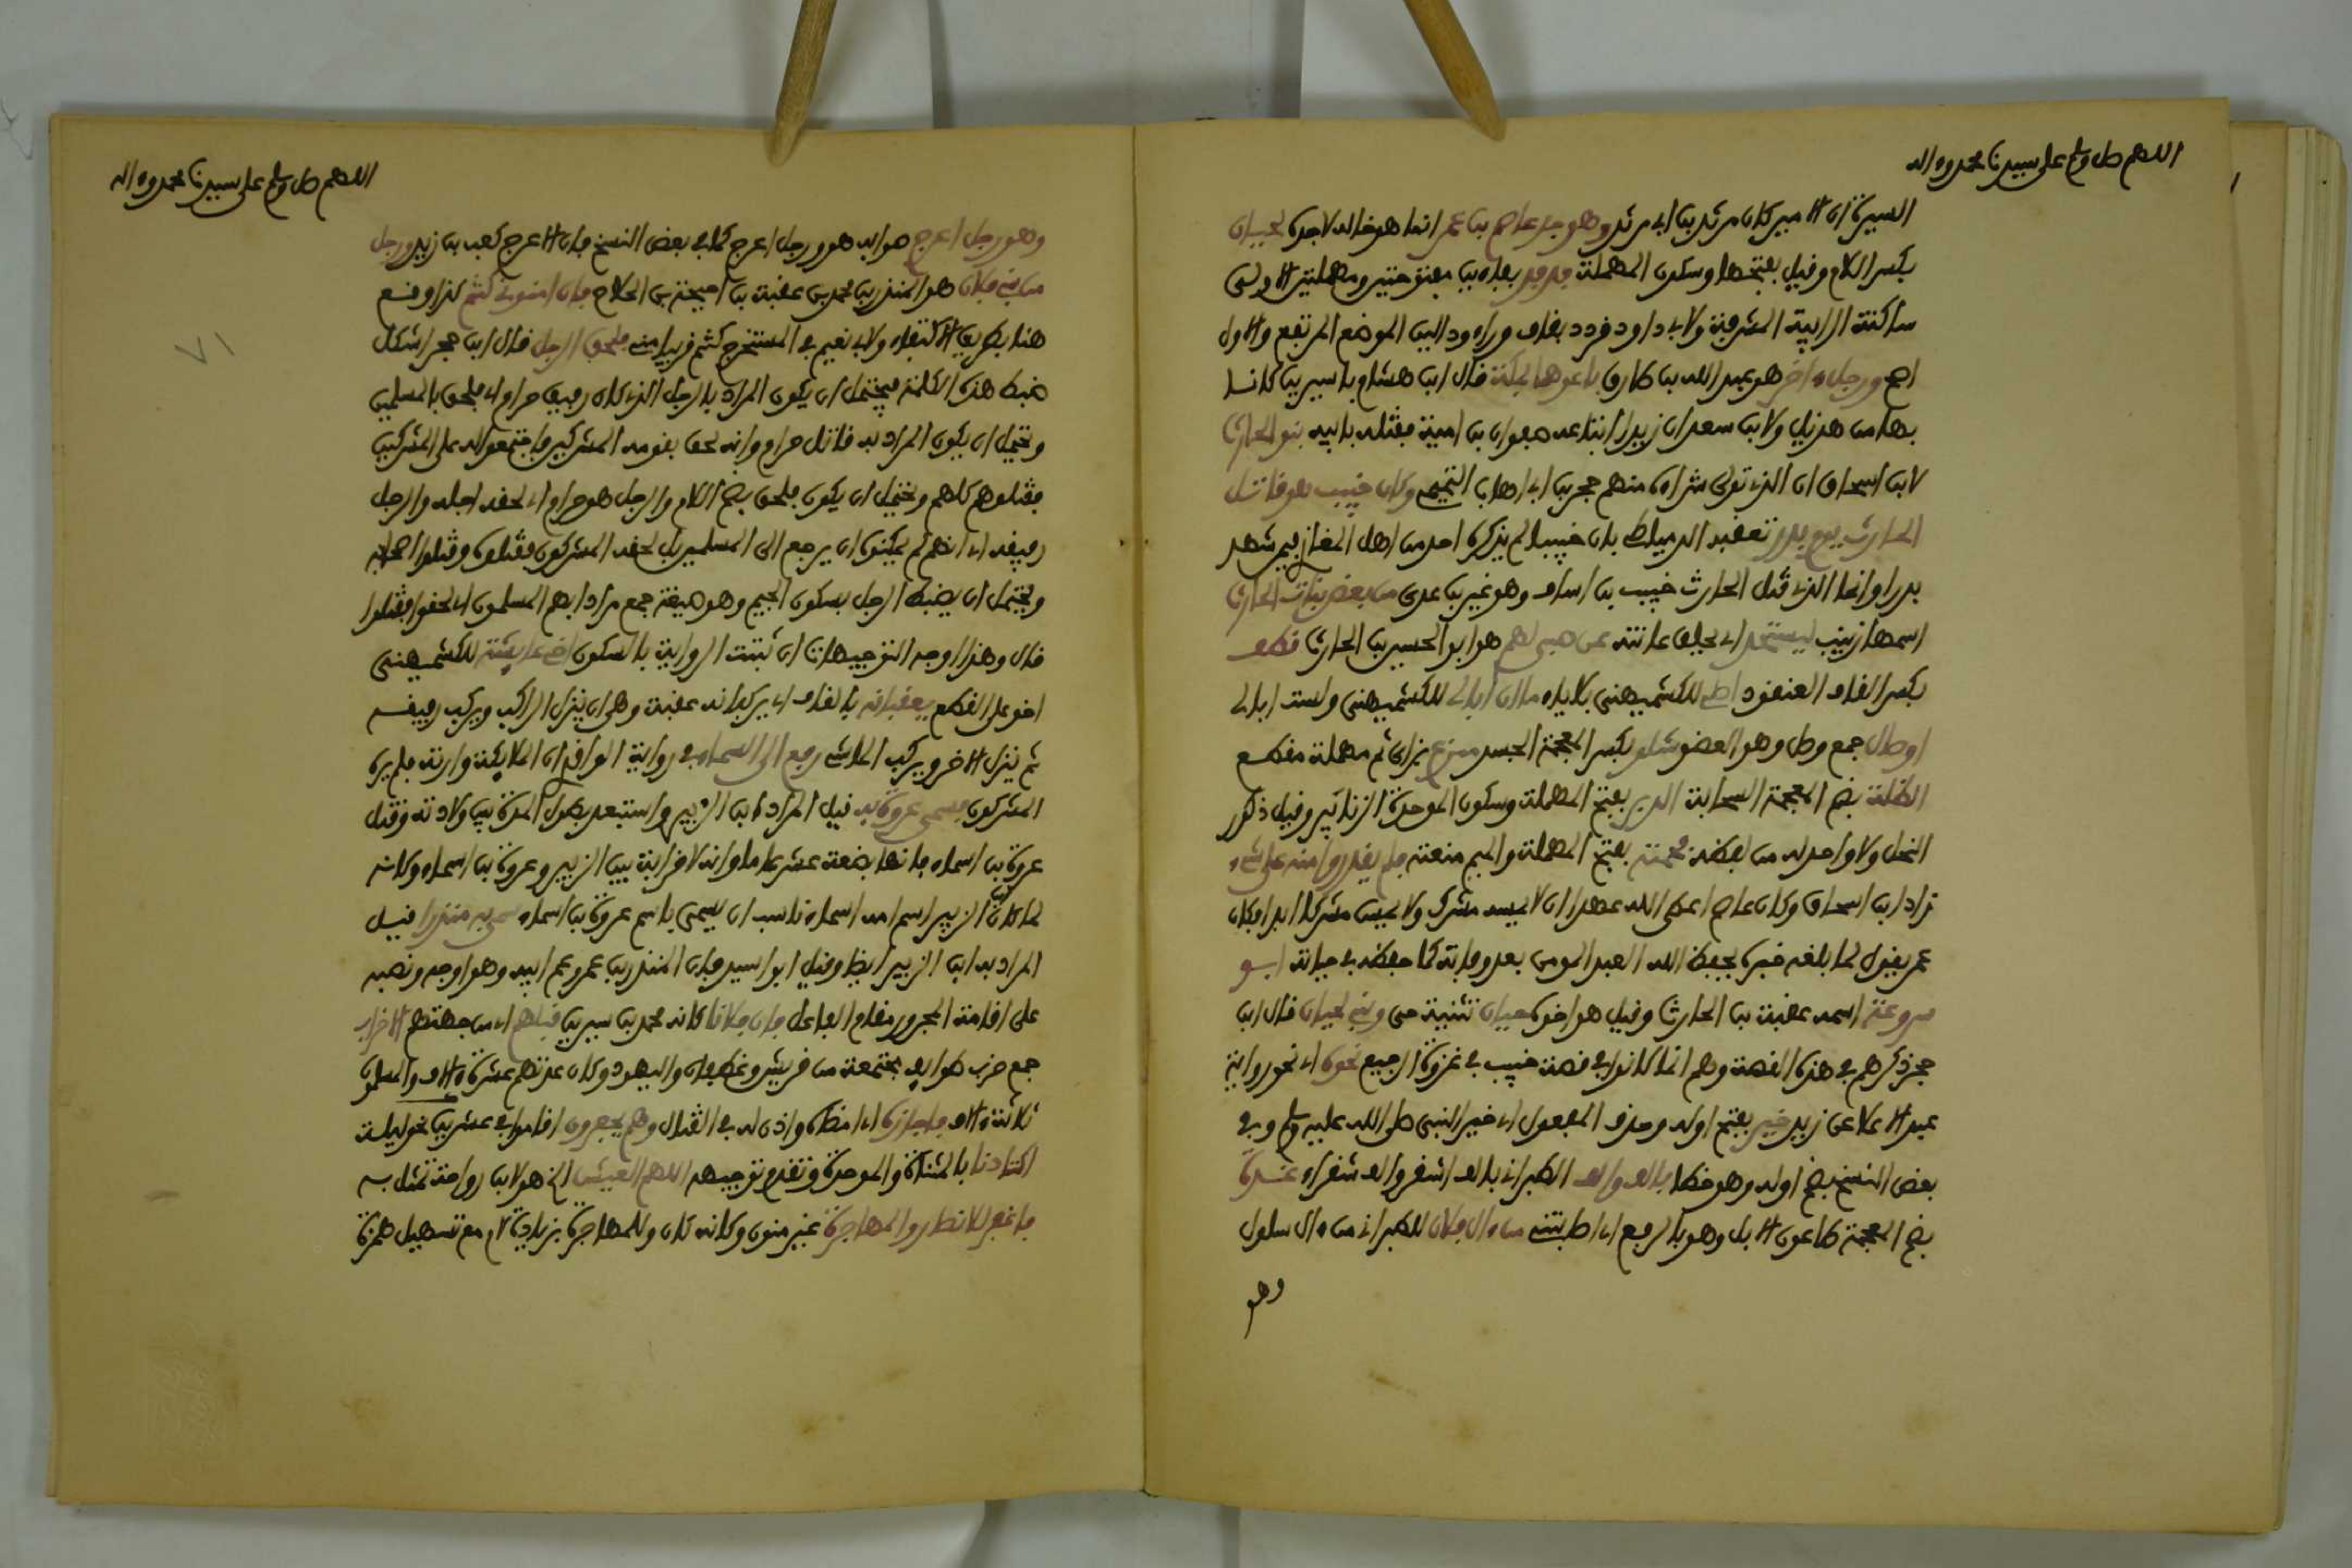 اللهم صل وسلم على سيدنا محمد وءاله
السيرة ان الامير كان مرثد بن ابي مرثد وهو جد عاصم بن عمر انما هو خاله لا جده لحيان
بكسر اللام وقيل بفتحها وسكون المهملة فدفد بفاءين مفتوحتين ومهملتين الاولى
ساكنة الرابية المشرفة ولابي داود قردد بقاف وراء ودالين الموضع المرتفع والاول
اصح ورجل ءاخر هو عبد الله بن طارق باعوهما بمكة قال ابن هشام باسيرين كانا
بها من هذيل ولابن سعد ان زيدا ابتاعه صفوان بن امية فقتله بابيه بنو الحارث
لابن اسحاق ان الذي تولى شراءه منهم حجير بن ابي اهاب التميمي وكان خبيب هو قاتل
الحارث يوم بدر تعقبه الدمياطي بان خبيبا لم يذكره احد من اهل المغازي فيمن شهد
بدرا وانما الذي قتل الحارث خبيب بن اساف وهو غير بن عدي من بعض بنات الحارث
اسمها زينب ليستحد اي يحلق عانته عن صبي لهم هو ابو الحسين بن الحارث قطف
بكسر القاف العنقود اصلي للكشميهني بلا ياء ما ان ابالي للكشميهني ولست ابالي
اوصال جمع وصل وهو العضو شلو بكسر المعجمة الجسد ممزع بزاي ثم مهملة مقطع
الظلة بضم المعجمة السحابة الدبر بفتح المهملة وسكون الموحدة الزنابير وقيل ذكور
النحل ولا واحد له من لفظه فحمته بفتح المهملة والميم منعته فلم يقدروا منه على شيء
زاد ابن اسحاق وكان عاصم اعطى الله عهدا ان لا يمسه مشرك ولا يمس مشركا ابدا فكان
عمر يقول لما بلغه خبره يحفظ الله العبد المومن بعد وفاته كما حفظه في حياته ابو
سروعة اسمه عقبة بن الحارث وقيل هو اخوه حيان تثنية حي وبني لحيان قال ابن
حجر ذكرهم في هذه القصة وهم انما كانوا في قصة خبيب في غزوة الرجيع نحوه اي نحو رواية
عبد الاعلا عن زيد خير بفتح اوله وحذف المفعول اي خير النبي صلى الله عليه وسلم وفي
بعض النسخ بضم اوله وهو خطا بالف والف الطبراني بالف اشقر والف شقراء غدة
بضم المعجمة طاعون الابل وهو بالرفع اي اصابتني من ءال فلان للطبراني من ءال سلول
وهو
اللهم صل وسلم على سيدنا محمد وءاله
وهو رجل اعرج صوابه هو ورجل اعرج كما في بعض النسخ فان الاعرج كعب بن زيد ورجل
من بني فلان هو المنذر بن محمد بن عقبة بن احيحة بن الجلاح فان امنوني كنتم كذا وقع
هنا بطريق الاكتفاء ولابي نعيم في المستخرج كنتم قريبا مني فلحق الرجل قال ابن حجر اشكل
ضبط هذه الكلمة فيحتمل ان يكون المراد بالرجل الذي كان رفيق حرام اي فلحق بالمسلمين
ويحتمل ان يكون المراد به قاتل حرام وانه لحق بقومه المشركين فاجتمعوا له على المشركين
فقتلوهم كلهم ويحتمل ان يكون فلحق بضم اللام والرجل هو حرام اي لحقه اجله والرجل
رفيقه اي انهم لم يمكنوه ان يرجع الى المسلمين بل لحقه المشركون فقتلوه وقتلوا اصحابه
ويحتمل ان يضبط الرجل بسكون الجيم وهو صيغة جمع مراد بهم المسلمون اي لحقوا فقتلوا
قال وهذا اوجه التوجيهات ان ثبتت الرواية بالسكون اخي عائشة للكشميهني
اخو على القطع يعقبانه بالقاف اي يركبانه عقبة وهي ان ينزل الراكب ويركب رفيقه
ثم ينزل الاخر ويركب الماشي رفع الى السماء في رواية الواقدي ان الملائكة وارته فلم يره
المشركون فسمي عروة به قيل المراد ابن الزبير واستبعد بطول المدة بين ولادته وقتل
عروة بن اسماء فانها بضعة عشر عاما وانه لا قرابة بين الزبير وعروة بن اسماء وكانه
لما كان الزبير اسم امه اسماء ناسب ان يسمى باسم عروة بن اسماء سمي به منذرا قيل
المراد به ابن الزبير ايضا وقيل ابو اسيد فان المنذر بن عمرو عم ابيه وهو اوجه ونصبه
على اقامة المجرور مقام الفاعل فان فلانا كانه محمد بن سيرين قبلهم اي من جهتهم الاحزاب
جمع حزب طوايف مجتمعة من قريش وغطفان واليهود وكان عدتهم عشرة ءالاف والمسلمون
ثلاثة ءالاف فاجازه اي امضاه واذن له في القتال وهم يحفرون اقاموا في عشرين نحو ليلة
اكتادنا بالمثناة والموحدة وتقدم توجيهه اللهم العيش الخ هو لابن رواحة تمثل به
فاغفر للانصار والمهاجرة غير منون وكانه كان وللمهاجرة بزيادة لام مع تسهيل همزة